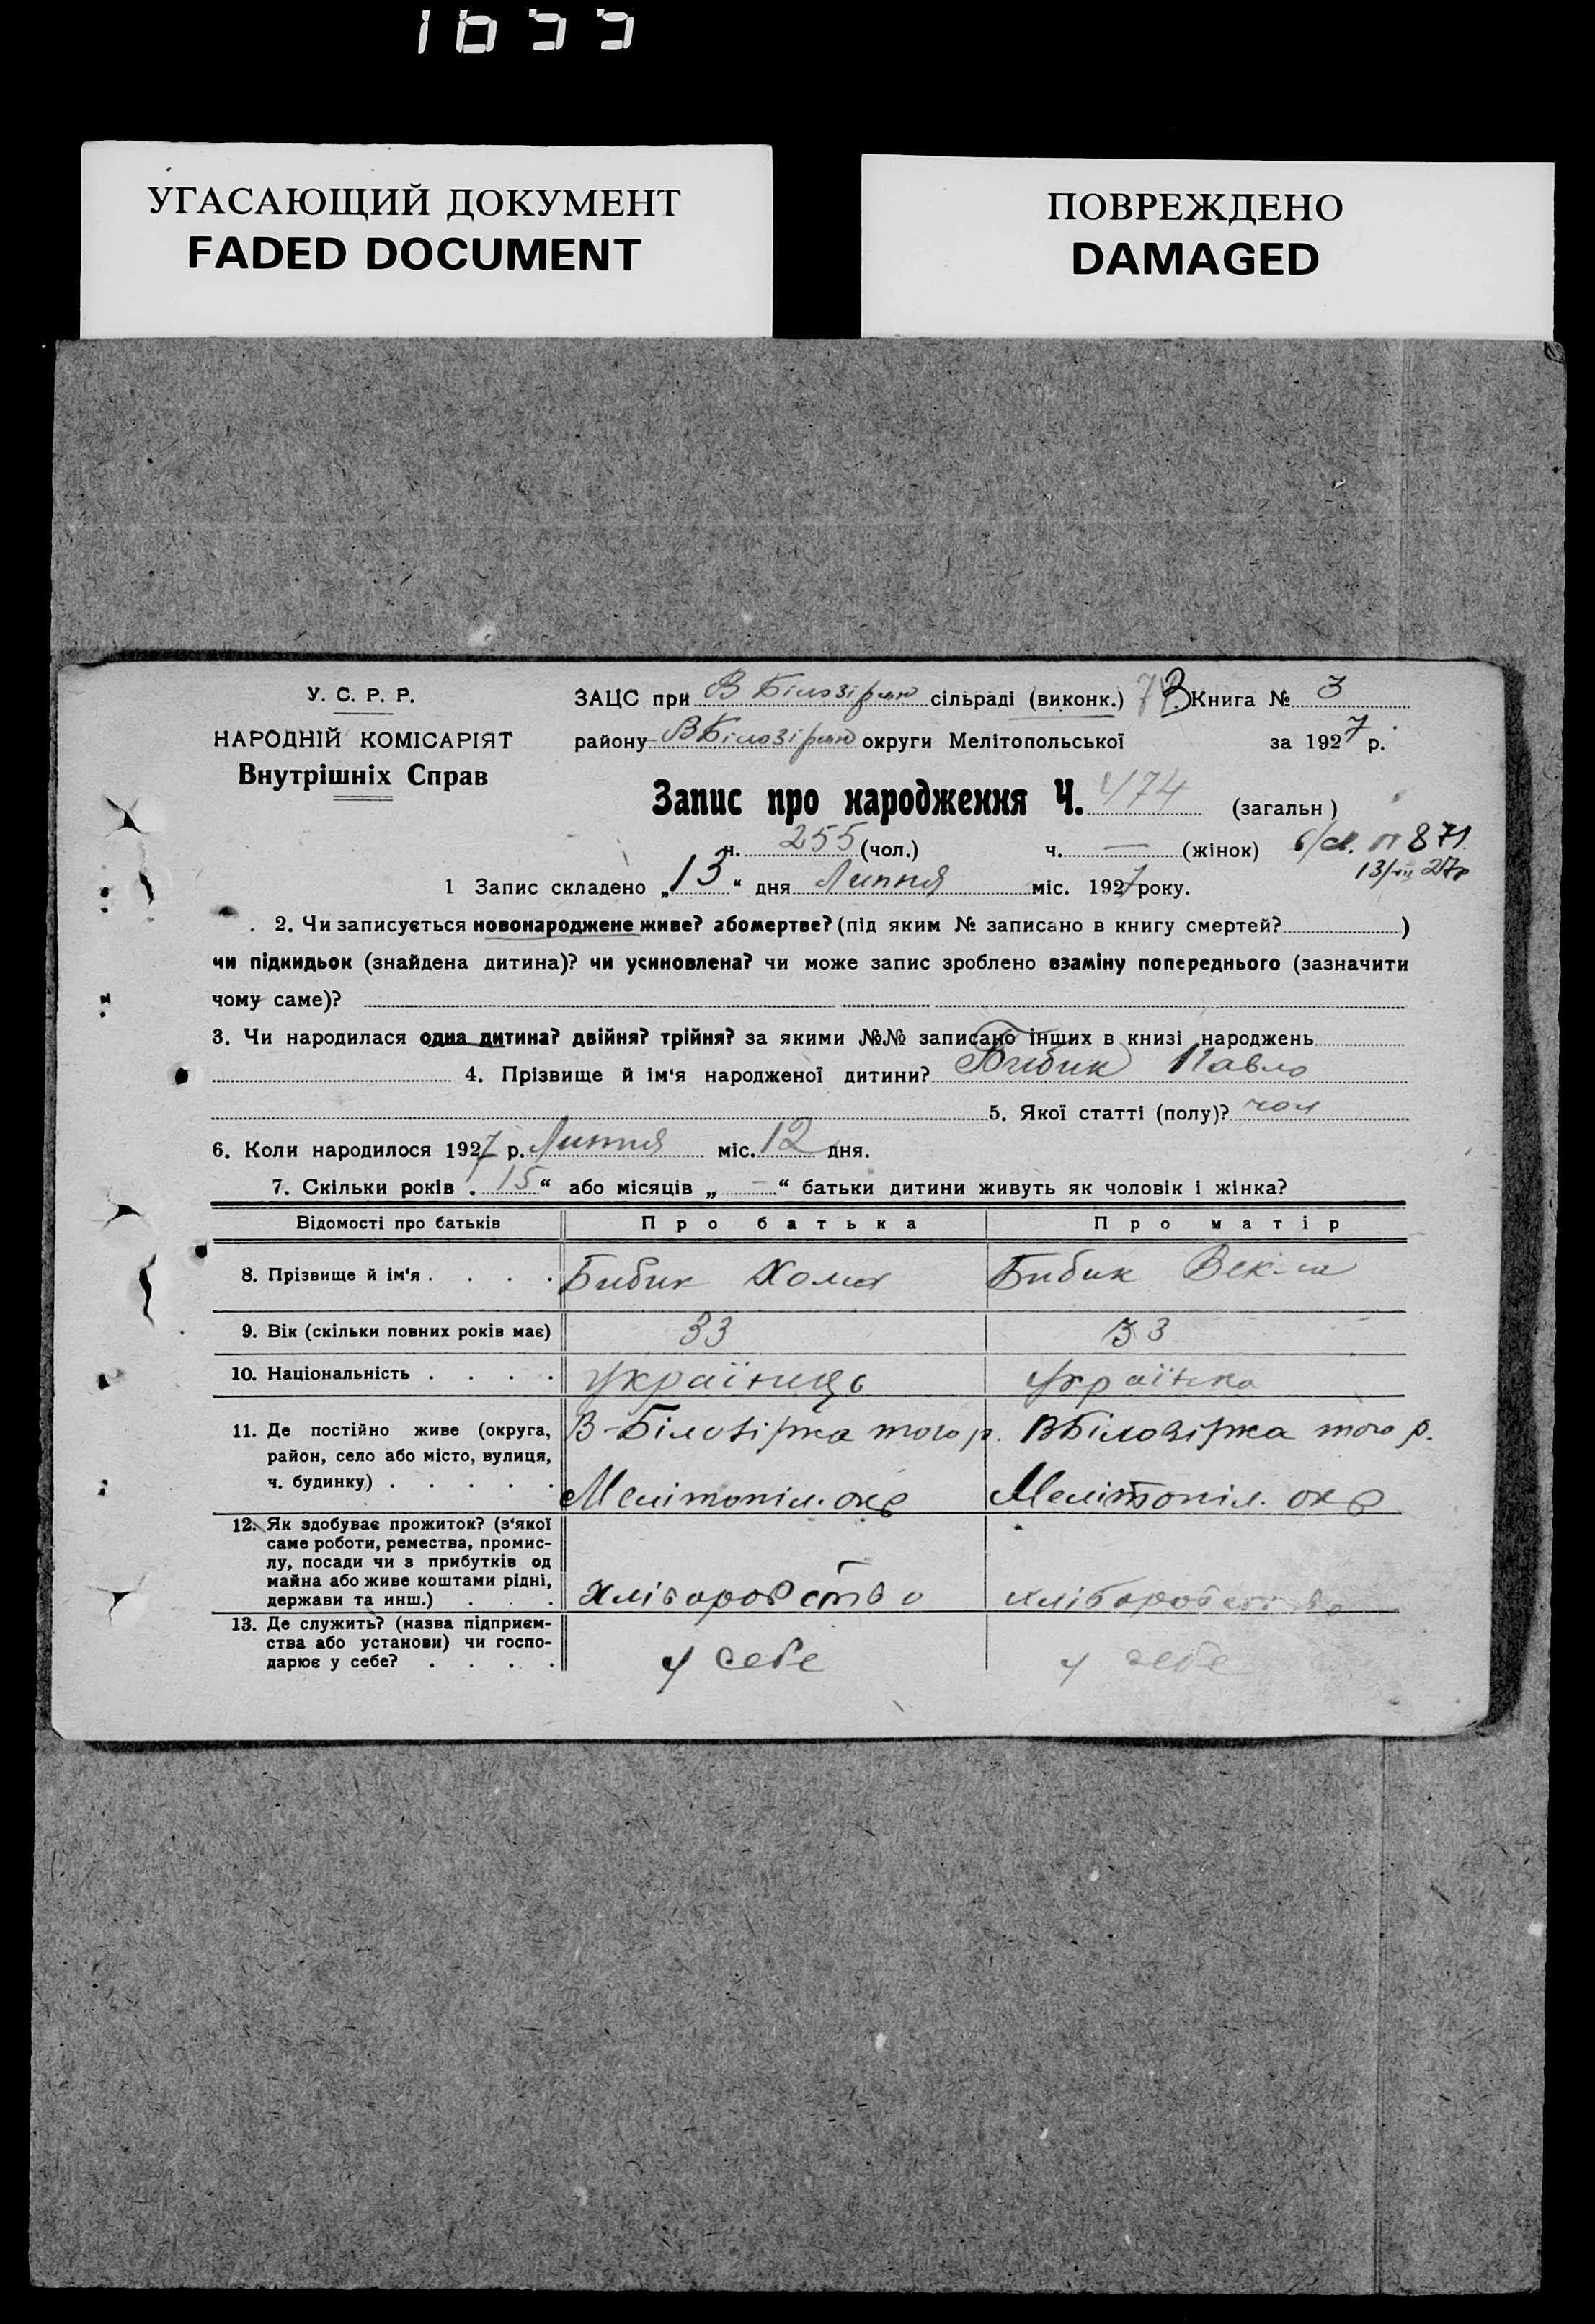 1655
УГАСАЮЩИЙ ДОКУМЕНТ
FADED DOCUMENT
ПОВРЕЖДЕНО
DAMAGED
У. С. Р. Р.
НАРОДНІЙ КОМІСАРІЯТ
Внутрішніх Справ
ЗАЦС при В Білозірс сільраді (виконк.) Книга № 3
району В Білозірс округи Мелітопольської за 1927 р.
Запис про народження Ч. 474 (загальн)
ч. 255 (чол.) ч. — (жінок) 871
13/VII 27р
1 Запис складено „13“ дня Липня міс. 1927 року.
2. Чи записується новонароджене живе? або мертве? (під яким № записано в книгу смертей? )
чи підкидьок (знайдена дитина)? чи усиновлена? чи може запис зроблено взаміну попереднього (зазначити
чому саме)?
3. Чи народилася одна дитина? двійня? трійня? за якими №№ записано інших в книзі народжень
4. Прізвище й ім‘я народженої дитини? Бибик Павло
5. Якої статті (полу)? чол
6. Коли народилося 1927 р. Липня міс. 12 дня.
7. Скільки років „15“ або місяців „—“ батьки дитини живуть як чоловік і жінка?
Відомості про батьків Про батька Про матір
8. Прізвище й ім‘я . . . . Бибик Хома Бибик Векла
9. Вік (скільки повних років має) 33 33
10. Національність . . . . українець українка
11. Де постійно живе (округа, В-Білозірка того р. В Білозірка того р.
район, село або місто, вулиця,
ч. будинку) . . . . . Мелітопіл. окр Мелітопіл. окр
12. Як здобуває прожиток? (з‘якої
саме роботи, ремества, промис-
лу, посади чи з прибутків од
майна або живе коштами рідні,
держави та инш.) . . . Хліборобство хліборобство
13. Де служить? (назва підприєм-
ства або установи) чи госпо-
дарює у себе? . . . . у себе у себе